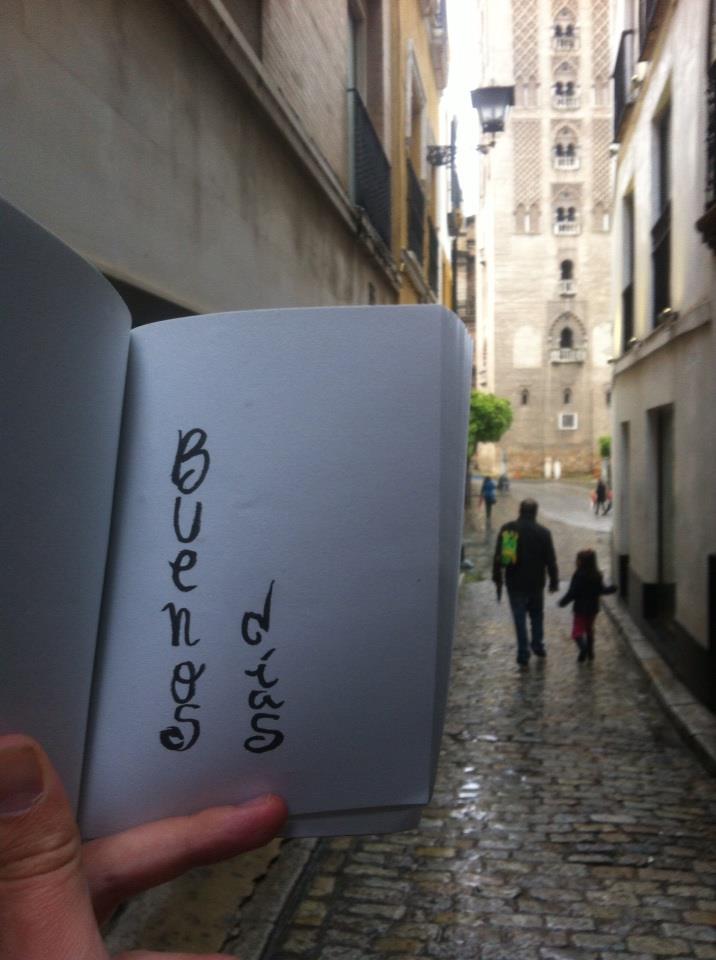 Buenos
dias